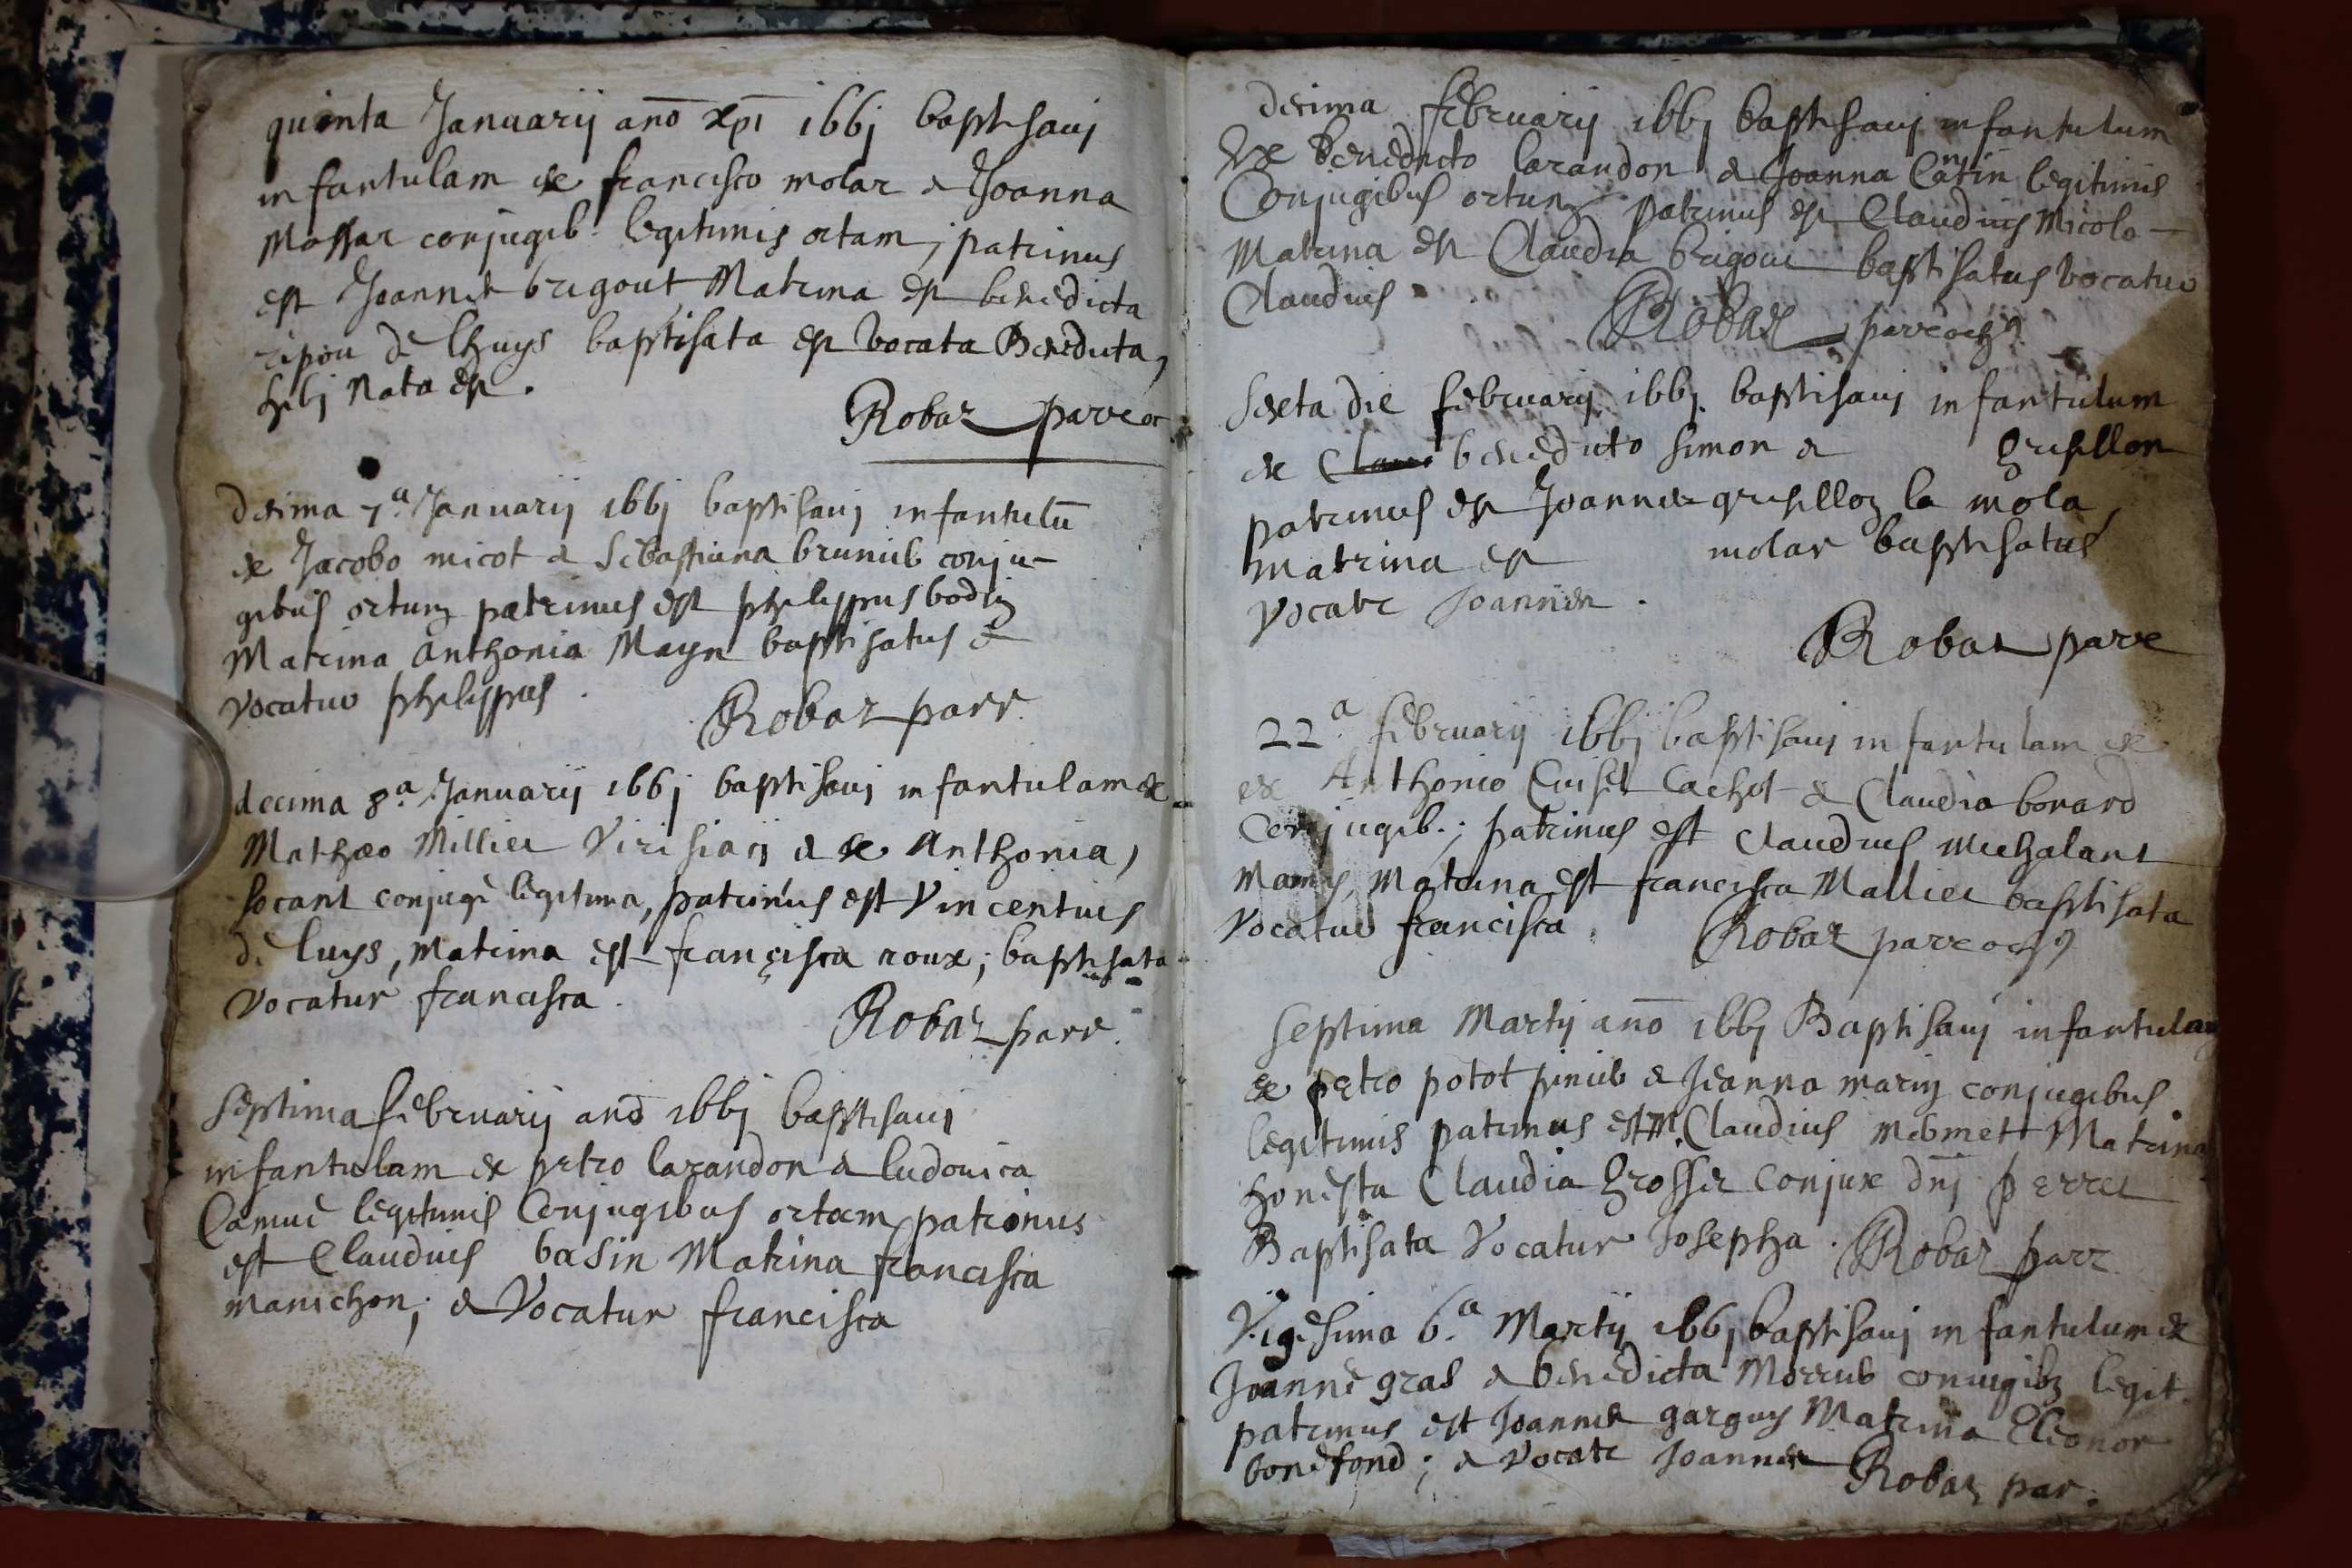 quinta Januarij año xpi 1661 baptisavj
infantulam ex francisco molar & Joanna
Massar conjugib. legitimis ortam; patrinus
est Joannes brigout Matrina est benedicta
ripou de lhuys baptisata est vocata Benedicta,
nata est.
Robaz parroc
Decima 7.a Januarij 1661 baptisavj infantulū
ex Jacobo micot & Sebastiana conju-
gibus ortum patrinus est phelippus bodin
Matrina Anthonia Mayn baptisatus &
vocatur phelippus
Robaz parr.
decima 8.a Januarij 1661 baptisavj infantulam ex
Mathæo Millier & ex Anthonia,
conjuge legitima, patrinus est Vincentius
de luys, matrina est françisca roux; baptisata
vocatur francisca.
Robaz parr.
Septima februarij año 1661 baptisavj
infantulam ex petro larandon & ludovica
Camue legitimis Conjugibus ortam patrinus
est Claudius basin Matrina francisca
manichon; & Vocatur francisca
Decima februarij 1661 baptisavj infantulum
ex benedicto larandon & Joanna Catin legitimis
Conjugibus ortum patrinus est Claudius Micolo
Matrina est Claudia brigout baptisatus vocatur
Claudius
Robaz parroch9
Sexta die februarij 1661 baptisavj infantulum
ex benedicto simon & grisillon
patrinus est Joannes grisillon la mola,
matrina est molar baptisatus
vocatr Joannes.
Robaz parr
22.a februarij 1661 baptisavj infantulam ex
ex Anthonio Cuiset Cachot & Claudia bonard
Conjugib.; patrinus est Claudius
matrina est francisca Mallier baptisata
vocatur francisca. Robaz parroch9
Septima Martij año 1661 Baptisavj infantulam
ex petro potot & Jeanna marin conjugibus
legitimis patrinus est M. Claudius Mermett Matrina
honesta Claudia Grosser Conjux dnj perret
Baptisata Vocatur Josepha. Robaz parr
Vigesima 6.a Martij 1661 baptisavj infantulum ex
Joanne gras & benedicta conjugibz legit.
patrinus est Joannes garguy Matrina Eleonor
bonefond; & vocatr Joannes Robaz par.